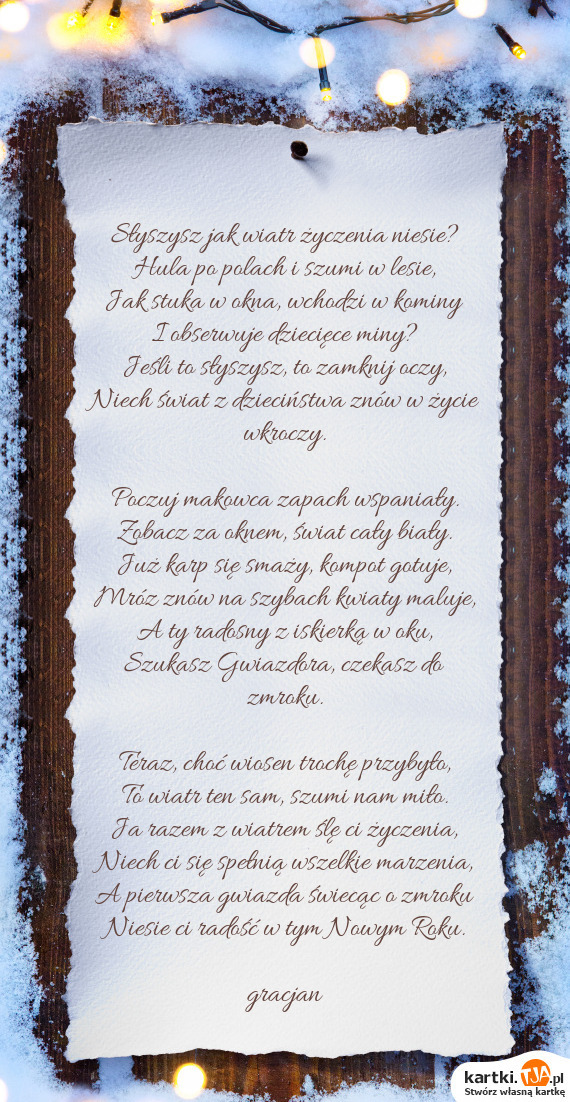 Słyszysz jak wiatr życzenia niesie?
Hula po polach i szumi w lesie,
Jak stuka w okna, wchodzi w kominy
I obserwuje dziecięce miny?
Jeśli to słyszysz, to zamknij oczy,
Niech świat z dzieciństwa znów w życie
wkroczy.
Poczuj makowca zapach wspaniały.
Zobacz za oknem, świat cały biały.
Już karp się smaży, kompot gotuje,
Mróz znów na szybach kwiaty maluje,
A ty radosny z iskierką w oku,
Szukasz Gwiazdora, czekasz do
zmroku.
Teraz, choć wiosen trochę przybyło,
To wiatr ten sam, szumi nam miło.
Ja razem z wiatrem ślę ci życzenia,
Niech ci się spełnią wszelkie marzenia,
A pierwsza gwiazda świecąc o zmroku
Niesie ci radość w tym Nowym Roku.
gracjan
kartki.TJA.pl
Stwórz własną kartkę